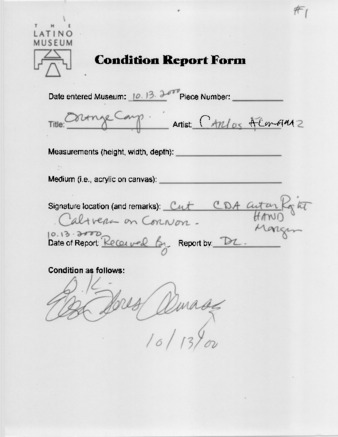 #1
THE
LATINO
MUSEUM
Condition Report Form
Date entered Museum: 10.13.2000 Piece Number:
Title: Orange Camp. Artist: Carlos Almaraz
Measurements (height, width, depth):
Medium (i.e., acrylic on canvas):
Signature location (and remarks): Cut CDA Right
HAND
on Margin
10.13.2000
Date of Report Received By Report by
Condition as follows:
O.K.
Elsa Flores Almaraz
10/13/00